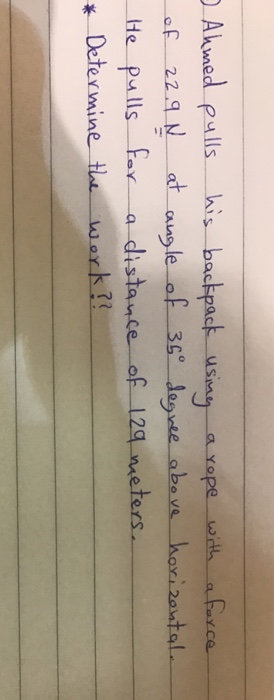 ) Ahmed pulls his backpack using a rope with a force
of 22.9 N at angle of 35° degree above horizontal.
He pulls for a distance of 129 meters.
* Determine the work??